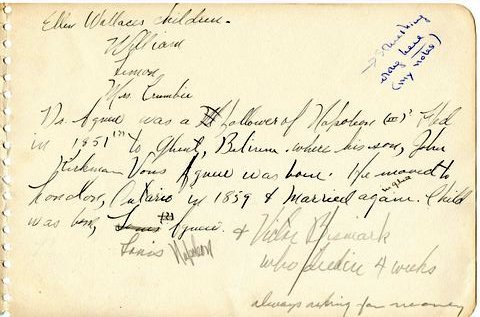 Ellen Wallaces children.
William
Simon
Mrs. Crumbie
→ something
wrong here
(my notes)
Agnew was a follower of Napoleon (III)? Fled
in 1851 to Ghent, Belgium where his son, John
Kirkman Agnew was born. He moved to
London, Ontario in 1859 & Married again. Child
was born, Louis Agnew. &
Victor Bismark
Louis Napoleon
who died in 4 weeks
always asking for money